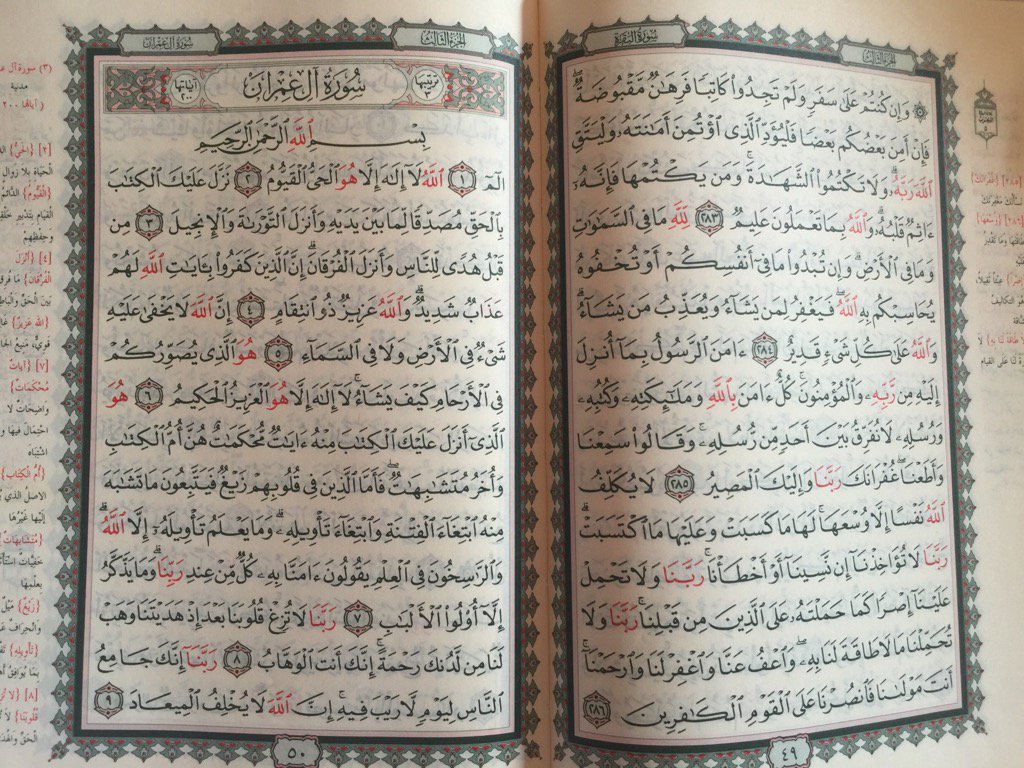 سُورَةُ البَقَرَة
الجُزءُ الثَّالِثُ
۞ وَإِن كُنتُمْ عَلَىٰ سَفَرٍ وَلَمْ تَجِدُوا۟ كَاتِبًا فَرِهَٰنٌ مَّقْبُوضَةٌ ۖ
فَإِنْ أَمِنَ بَعْضُكُم بَعْضًا فَلْيُؤَدِّ ٱلَّذِى ٱؤْتُمِنَ أَمَٰنَتَهُۥ وَلْيَتَّقِ
ٱللَّهَ رَبَّهُۥ ۗ وَلَا تَكْتُمُوا۟ ٱلشَّهَٰدَةَ ۚ وَمَن يَكْتُمْهَا فَإِنَّهُۥٓ
ءَاثِمٌ قَلْبُهُۥ ۗ وَٱللَّهُ بِمَا تَعْمَلُونَ عَلِيمٌ ٢٨٣ لِّلَّهِ مَا فِى ٱلسَّمَٰوَٰتِ
وَمَا فِى ٱلْأَرْضِ ۗ وَإِن تُبْدُوا۟ مَا فِىٓ أَنفُسِكُمْ أَوْ تُخْفُوهُ
يُحَاسِبْكُم بِهِ ٱللَّهُ ۖ فَيَغْفِرُ لِمَن يَشَآءُ وَيُعَذِّبُ مَن يَشَآءُ ۗ
وَٱللَّهُ عَلَىٰ كُلِّ شَىْءٍ قَدِيرٌ ٢٨٤ ءَامَنَ ٱلرَّسُولُ بِمَآ أُنزِلَ
إِلَيْهِ مِن رَّبِّهِۦ وَٱلْمُؤْمِنُونَ ۚ كُلٌّ ءَامَنَ بِٱللَّهِ وَمَلَٰٓئِكَتِهِۦ وَكُتُبِهِۦ
وَرُسُلِهِۦ لَا نُفَرِّقُ بَيْنَ أَحَدٍ مِّن رُّسُلِهِۦ ۚ وَقَالُوا۟ سَمِعْنَا
وَأَطَعْنَا ۖ غُفْرَانَكَ رَبَّنَا وَإِلَيْكَ ٱلْمَصِيرُ ٢٨٥ لَا يُكَلِّفُ
ٱللَّهُ نَفْسًا إِلَّا وُسْعَهَا ۚ لَهَا مَا كَسَبَتْ وَعَلَيْهَا مَا ٱكْتَسَبَتْ ۗ
رَبَّنَا لَا تُؤَاخِذْنَآ إِن نَّسِينَآ أَوْ أَخْطَأْنَا ۚ رَبَّنَا وَلَا تَحْمِلْ
عَلَيْنَآ إِصْرًا كَمَا حَمَلْتَهُۥ عَلَى ٱلَّذِينَ مِن قَبْلِنَا ۚ رَبَّنَا وَلَا
تُحَمِّلْنَا مَا لَا طَاقَةَ لَنَا بِهِۦ ۖ وَٱعْفُ عَنَّا وَٱغْفِرْ لَنَا وَٱرْحَمْنَآ ۚ
أَنتَ مَوْلَىٰنَا فَٱنصُرْنَا عَلَى ٱلْقَوْمِ ٱلْكَٰفِرِينَ ٢٨٦
٤٩
الجُزءُ الثَّالِثُ
سُورَةُ آلِ عِمْرَانَ
تَرتِيبُهَا ٣
سُورَةُ آلِ عِمْرَانَ
آيَاتُهَا ٢٠٠
بِسْمِ ٱللَّهِ ٱلرَّحْمَٰنِ ٱلرَّحِيمِ
الٓمٓ ١ ٱللَّهُ لَآ إِلَٰهَ إِلَّا هُوَ ٱلْحَىُّ ٱلْقَيُّومُ ٢ نَزَّلَ عَلَيْكَ ٱلْكِتَٰبَ
بِٱلْحَقِّ مُصَدِّقًا لِّمَا بَيْنَ يَدَيْهِ وَأَنزَلَ ٱلتَّوْرَىٰةَ وَٱلْإِنجِيلَ ٣ مِن
قَبْلُ هُدًى لِّلنَّاسِ وَأَنزَلَ ٱلْفُرْقَانَ ۗ إِنَّ ٱلَّذِينَ كَفَرُوا۟ بِـَٔايَٰتِ ٱللَّهِ لَهُمْ
عَذَابٌ شَدِيدٌ ۗ وَٱللَّهُ عَزِيزٌ ذُو ٱنتِقَامٍ ٤ إِنَّ ٱللَّهَ لَا يَخْفَىٰ عَلَيْهِ
شَىْءٌ فِى ٱلْأَرْضِ وَلَا فِى ٱلسَّمَآءِ ٥ هُوَ ٱلَّذِى يُصَوِّرُكُمْ
فِى ٱلْأَرْحَامِ كَيْفَ يَشَآءُ ۚ لَآ إِلَٰهَ إِلَّا هُوَ ٱلْعَزِيزُ ٱلْحَكِيمُ ٦ هُوَ
ٱلَّذِىٓ أَنزَلَ عَلَيْكَ ٱلْكِتَٰبَ مِنْهُ ءَايَٰتٌ مُّحْكَمَٰتٌ هُنَّ أُمُّ ٱلْكِتَٰبِ
وَأُخَرُ مُتَشَٰبِهَٰتٌ ۖ فَأَمَّا ٱلَّذِينَ فِى قُلُوبِهِمْ زَيْغٌ فَيَتَّبِعُونَ مَا تَشَٰبَهَ
مِنْهُ ٱبْتِغَآءَ ٱلْفِتْنَةِ وَٱبْتِغَآءَ تَأْوِيلِهِۦ ۗ وَمَا يَعْلَمُ تَأْوِيلَهُۥٓ إِلَّا ٱللَّهُ ۗ
وَٱلرَّٰسِخُونَ فِى ٱلْعِلْمِ يَقُولُونَ ءَامَنَّا بِهِۦ كُلٌّ مِّنْ عِندِ رَبِّنَا ۗ وَمَا يَذَّكَّرُ
إِلَّآ أُو۟لُوا۟ ٱلْأَلْبَٰبِ ٧ رَبَّنَا لَا تُزِغْ قُلُوبَنَا بَعْدَ إِذْ هَدَيْتَنَا وَهَبْ
لَنَا مِن لَّدُنكَ رَحْمَةً ۚ إِنَّكَ أَنتَ ٱلْوَهَّابُ ٨ رَبَّنَآ إِنَّكَ جَامِعُ
ٱلنَّاسِ لِيَوْمٍ لَّا رَيْبَ فِيهِ ۚ إِنَّ ٱللَّهَ لَا يُخْلِفُ ٱلْمِيعَادَ ٩
٥٠